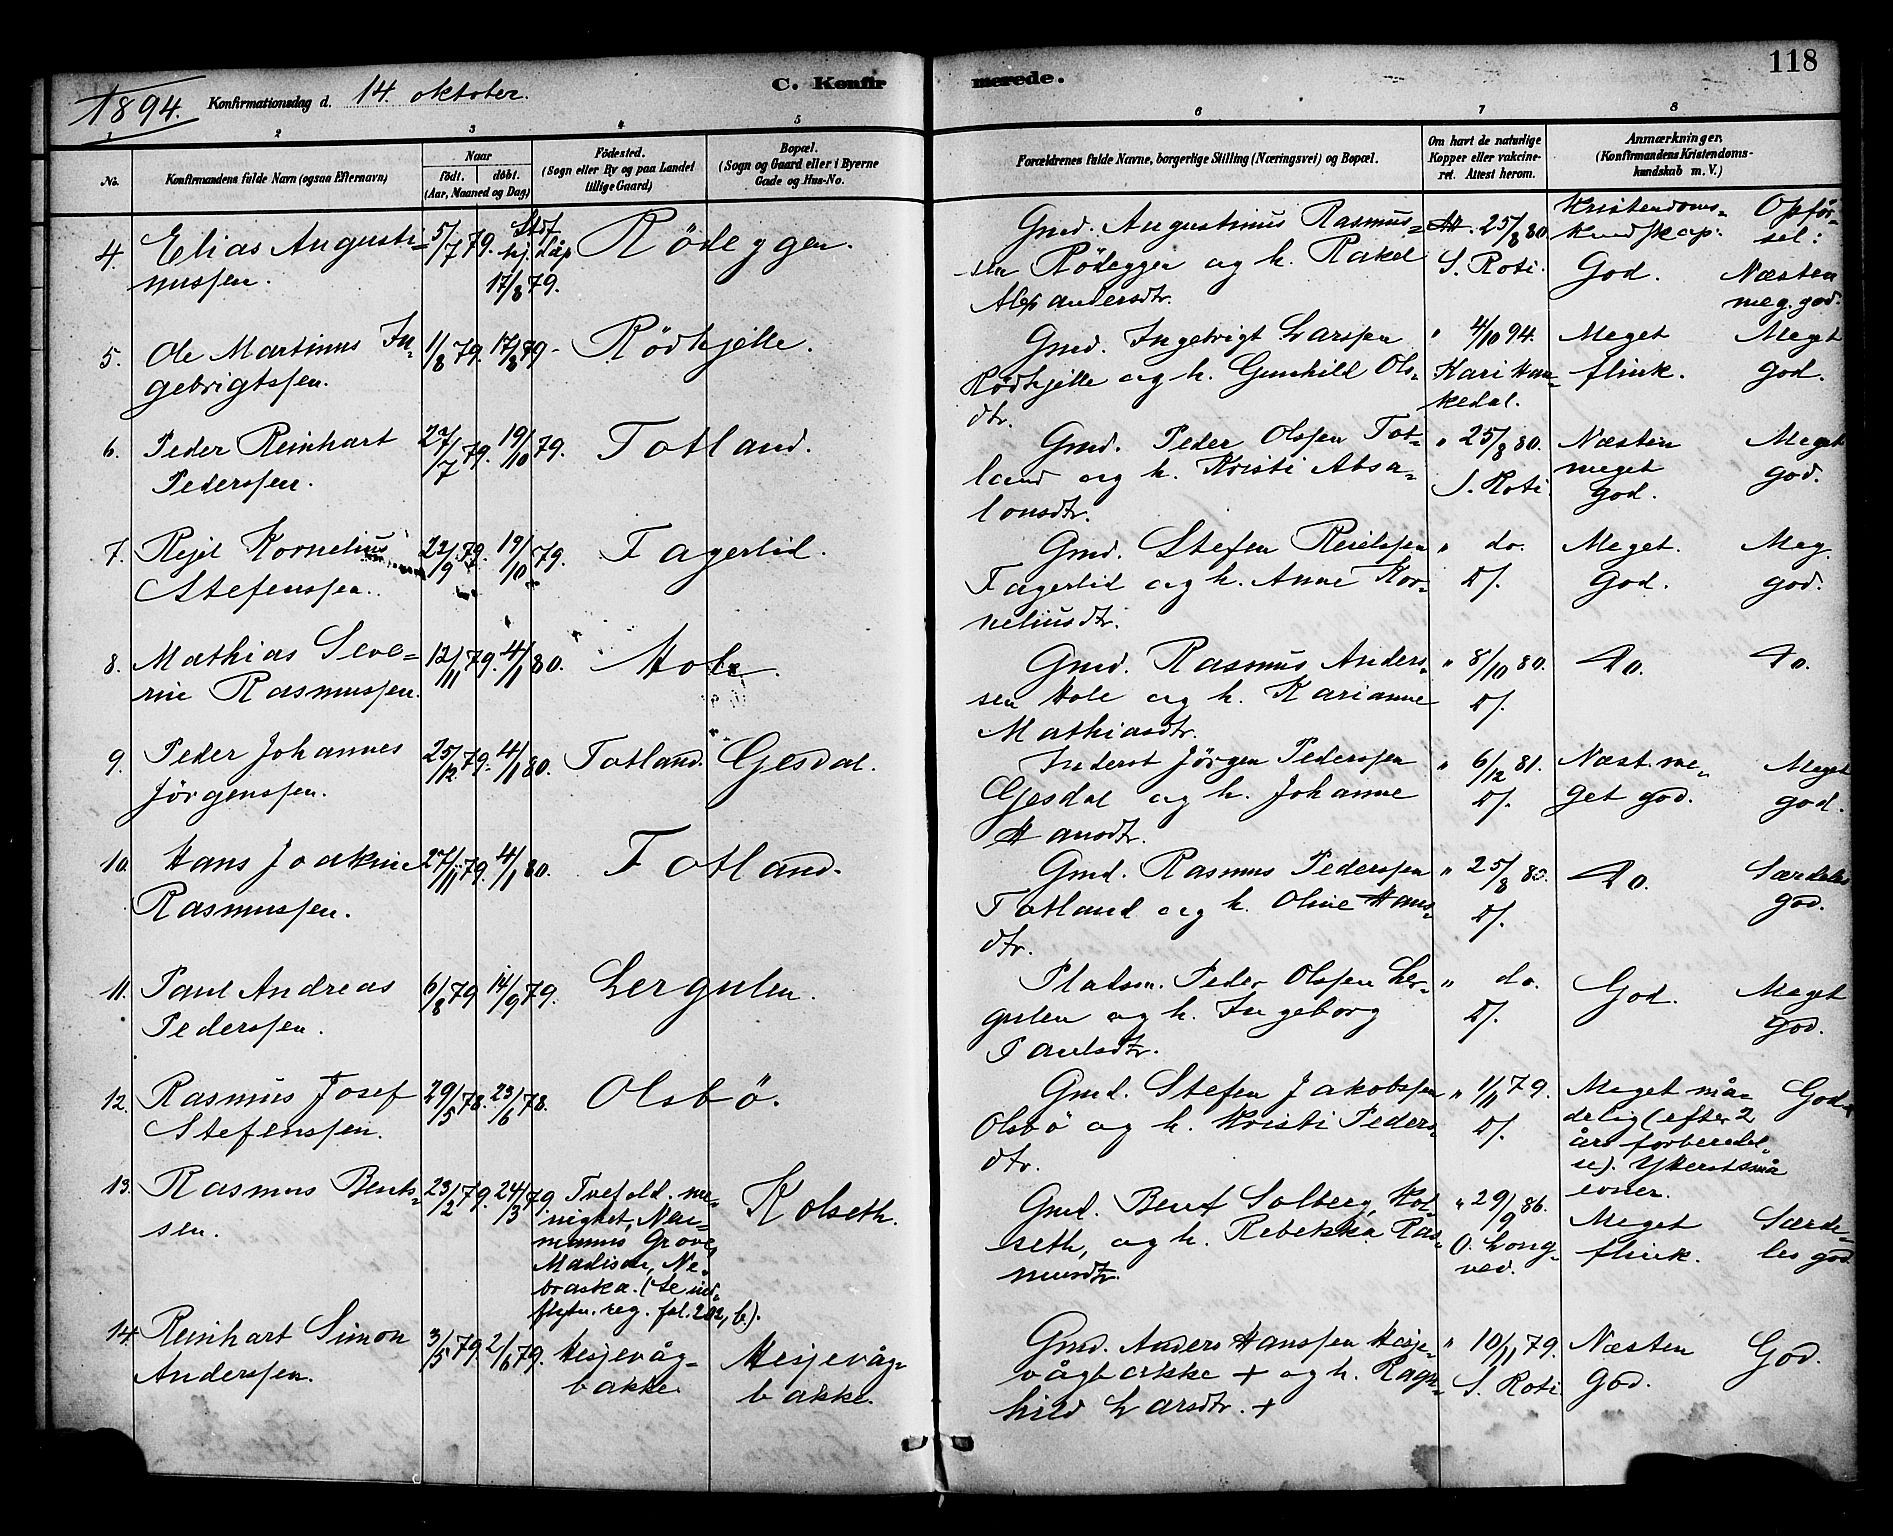 118
1894. Konfirmationsdag d. 14. oktober. C. Konfirmerede.
1 2 3 4 5 6 7 8
No.
Konfirmandens fulde Navn (ogsaa Efternavn)
Naar
født. døbt.
(Aar, Maaned og Dag)
Fødested.
(Sogn eller By og paa Landet
tillige Gaard)
Bopæl.
(Sogn og Gaard eller i Byerne
Gade og Hus-No.
Forældrenes fulde Navne, borgerlige Stilling (Næringsvei) og Bopæl.
Om havt de naturlige
Kopper eller vakcine-
ret. Attest herom.
Anmærkninger.
(Konfirmandens Kristendoms-
kundskab m. V.)
Kristendoms- Opför-
kundskap: sel:
4. Elias Augusti-
nussen.
5/7 79. Stdf.
hj. dåp
17/8 79.
Rödeggen.
Gmd. Augustinus Rasmus-
sen Rödeggen og h. Rakel
Alexandersdtr.
At. 25/8 80.
S. Roti.
God. Næsten
meg. god.
5. Ole Martinus In-
gebrigtssen.
1/8 79. 17/8 79. Rödhjelle.
Gmd. Ingebrigt Larssen
Rödhjelle og h. Gunhild Ols-
dtr.
" 4/10 94.
Kari Han-
kedal.
Meget Meget
flink. god.
6. Peder Reinhart
Pederssen.
27/7 79. 19/10 79. Totland.
Gmd. Peder Olssen Tot-
land og h. Kristi Absa-
lonsdtr.
" 25/8 80.
S. Roti.
Næsten Meget
meget god.
god.
7. Rejel Kornelius
Stefenssen.
22/9 79. 19/10 79. Fagerlid.
Gmd. Stefen Reielssen
Fagerlid og h. Anne Kor-
neliusdtr.
" do.
D/.
Meget. Meg.
God. god.
8. Mathias Seve-
rin Rasmussen.
12/11 79. 4/1 80. Hole.
Gmd. Rasmus Anders-
sen Hole og h. Karianne
Mathiasdtr.
" 8/10 80.
D/.
Do. Do.
9. Peder Johannes
Jörgenssen.
25/12 79. 4/1 80. Totland. Gesdal.
Inderst Jörgen Pederssen
Gesdal og h. Johanne
Hansdtr.
" 6/12 81.
D/.
Næst. me- Meget
get god. god.
10. Hans Joakim
Rasmussen.
27/11 79. 4/1 80. Totland.
Gmd. Rasmus Pederssen
Totland og h. Oline Hans-
dtr.
" 25/8 80.
D/.
Do. Særdeles
god.
11. Paul Andreas
Pederssen.
6/8 79. 14/9 79. Lergulen.
Pladsm. Peder Olssen Ler-
gulen og h. Ingeborg
Paulsdtr.
" do.
D/.
God. Meget
god.
12. Rasmus Josef
Stefenssen.
29/5 78. 23/6 78. Olsbö.
Gmd. Stefen Jakobssen
Olsbö og h. Kristi Peders-
dtr.
" 1/11 79.
D/.
Meget må- God.
delig (efter 2
års forberedel-
se). Yderst små
evner.
13. Rasmus Bents-
sen.
23/2 79. 24/3 79. Tvefold. me-
nighet, Nor-
manns Grove,
Madison, Ne-
braska. (Se ind-
flytn. reg. fol. 202, b.).
Kolseth.
Gmd. Bent Solberg, Kol-
seth, og h. Rebekka Ras-
musdtr.
" 29/9 86.
O. Long-
ved.
Meget Særde-
flink. les god.
14. Reinhart Simon
Anderssen.
3/5 79. 2/6 79. Hesjevåg-
bakke.
Hesjevåg-
bakke.
Gmd. Anders Hanssen Hesje-
vågbakke + og h. Ragn-
hild Larsdtr. +
" 10/11 79.
S. Roti
Næsten God.
god.